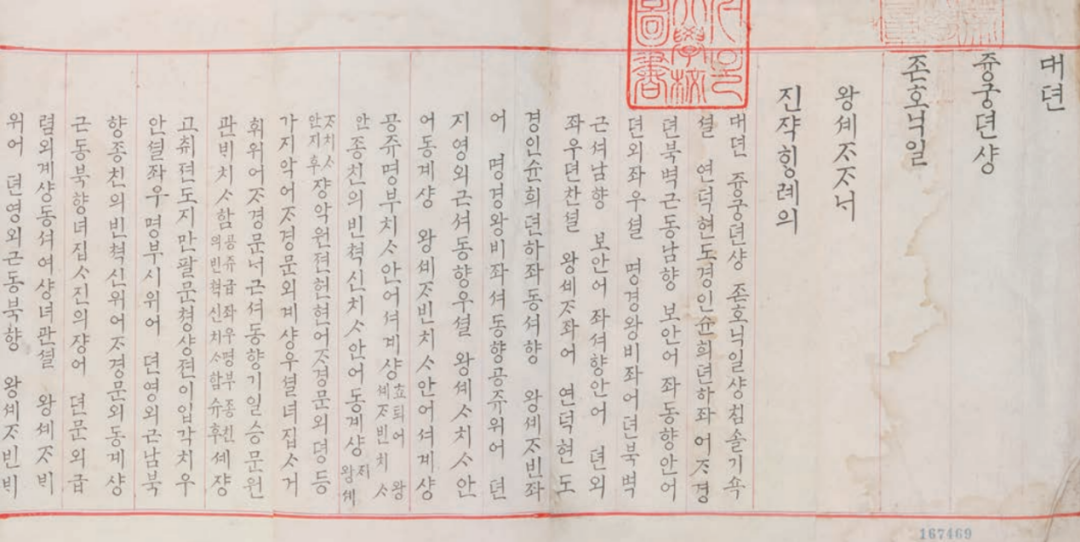 대뎐
즁궁뎐샹
존호닉일
왕셰ᄌᆞᄌᆞ닉
진쟉ᄒᆡᆼ례의
대뎐 즁궁뎐샹 존호닉일샹침솔기쇽
셜 연덕현도경인슌희뎐하좌 어ᄌᆞ경
뎐북벽근동남향 보안어 좌동향안어
뎐외좌우셜 명경왕비좌어뎐북벽
근셔남향 보안어 좌셔향안어 뎐외
좌우뎐찬셜 왕셰ᄌᆞ좌어 연덕현도
경인슌희뎐하좌동셔향 왕셰ᄌᆞ빈좌
어 명경왕비좌셔동향공쥬위어 뎐
지영외근셔동향우셜 왕셰ᄉᆞ치ᄉᆞ안
어동계샹 왕셰ᄌᆞ빈치ᄉᆞ안어셔계샹
공쥬명부치ᄉᆞ안어셔계샹
안종친의빈쳑신치ᄉᆞ안어동계샹
쟝악원뎐헌현어ᄌᆞ경문외뎡등
가지악어ᄌᆞ경문외계샹우셜녀집ᄉᆞ거
휘위어ᄌᆞ경문닉근셔동향기일승문원
관비치ᄉᆞ함 공쥬급좌우명부종친의빈쳑신치ᄉᆞ함슈후 셰쟝
고취뎐도지만팔문쳥샹젼이입각치우
안셜좌우명부시위어 뎐영외근남북
향종친의빈쳑신위어ᄌᆞ경문외동계샹
근동북향녀집ᄉᆞ진의쟝어 뎐문외급
렴외계샹동셔여샹녀관셜 왕셰ᄌᆞ비
위어 뎐영외근동북향 왕셰ᄌᆞ빈비
167469